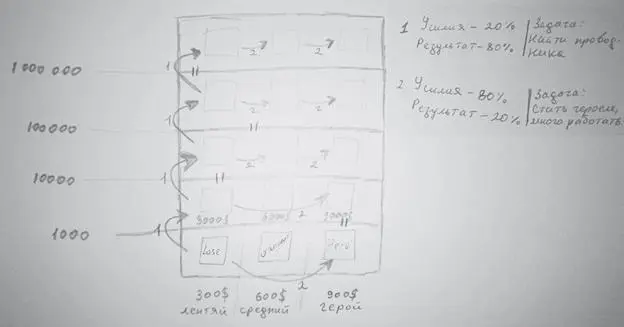 1 Усилия - 20%
Результат - 80%
Задача:
Найти провод-
ника
2 Усилия - 80%
Результат - 20%
Задача:
Стать героем,
много работать
1 000 000
100 000
10000
1000
1
2
2
1
2
2
1
2
2
1
2
3000$
6000$
Lose
Hero
2
300$
600$
900$
лентяй
средний
герой